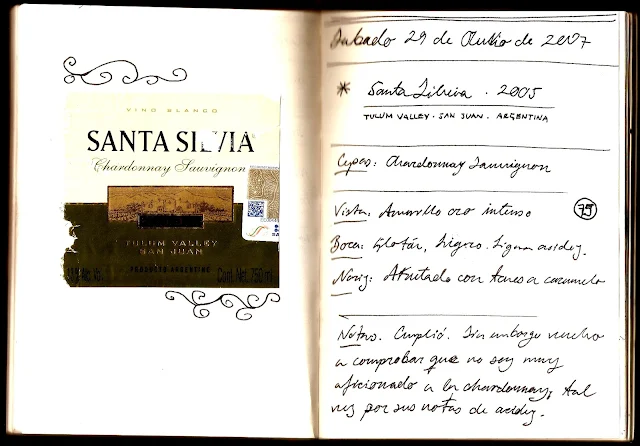 VINO BLANCO
SANTA SILVIA
Chardonnay Sauvignon
TULUM VALLEY
SAN JUAN
PRODUCTO ARGENTINO
Cont. Net. 750 ml
Sabado 29 de de 2007
* Santa Silvia . 2005
TULUM VALLEY . SAN JUAN . ARGENTINA
Cepas: Chardonnay Sauvignon
Vista: Amarillo oro intenso
79
Boca: Ligero. Ligera acidez.
Nariz: Afrutado con a caramelo
Notas. Cumplió. Sin embargo vuelvo
a comprobar que no soy muy
aficionado a la chardonnay, tal
vez por sus notas de acidez.